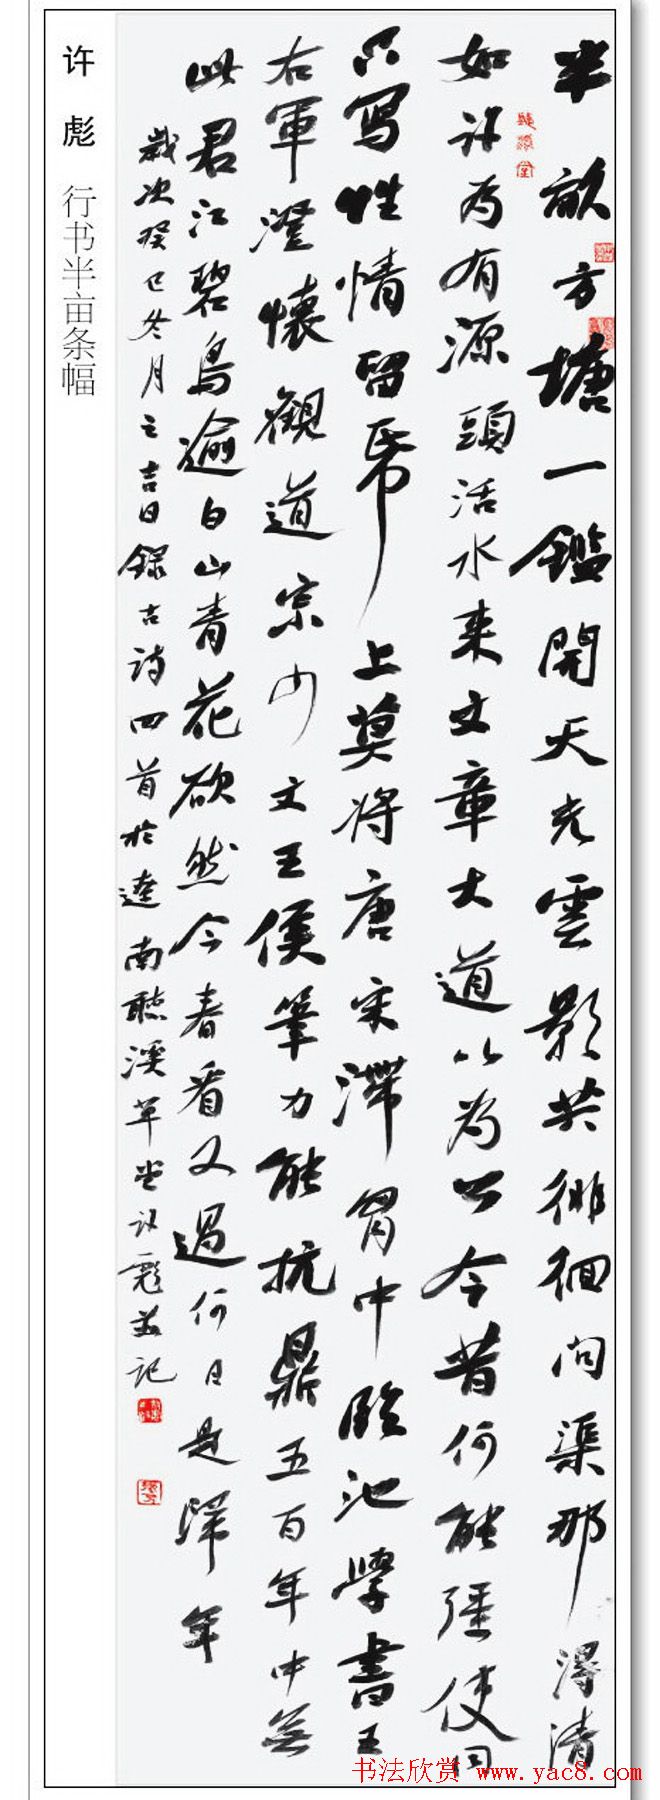 半畝方塘一鑑開天光雲影共徘徊問渠那得清
如許為有源頭活水來文章大道以為公今昔何能強使同
只寫性情留帋上莫將唐宋滯胷中臨池學書王
右軍澄懷觀道宗少文王侯筆力能抗鼎五百年中無
此君江碧鳥逾白山青花欲然今春看又過何日是歸年
歲次癸巳冬月之吉日錄古詩四首於達南聽溪草堂許彪並記
许彪 行书半亩条幅
书法欣赏 www.yac8.com